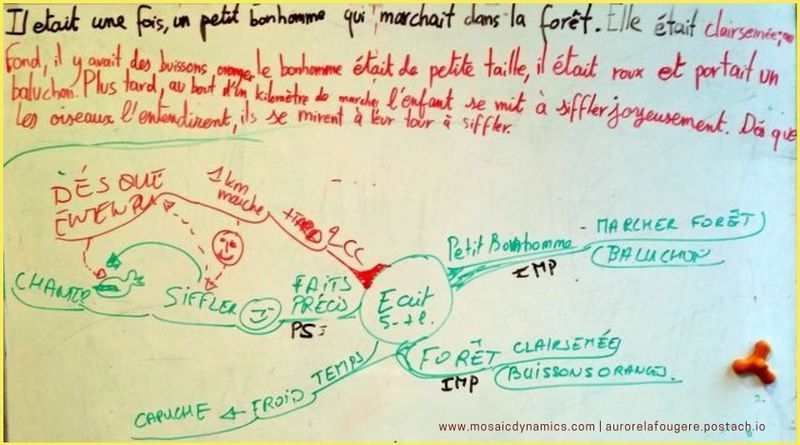 Il etait une fois, un petit bonhomme qui marchait dans la forêt. Elle était clairsemée, au
fond, il y avait des buissons oranges, le bonhomme était de petite taille, il était roux et portait un
baluchon. Plus tard, au bout d'un kilomètre de marche, l'enfant se mit à siffler joyeusement. Dés que
les oiseaux l'entendirent, ils se mirent à leur tour à siffler.
DÉS QUE
ENTENDU
1 km
marche
TARD
2CC
Petit Bonhomme
IMP
MARCHER FORÊT
BALUCHON
CHANTER
SIFFLER
FAITS
PRÉCIS
PS
Ecrit
FORÊT
IMP
CLAIRSEMÉE
BUISSONS ORANGES
TEMPS
FROID
CAPUCHE
www.mosaicdynamics.com | aurorelafougere.postach.io